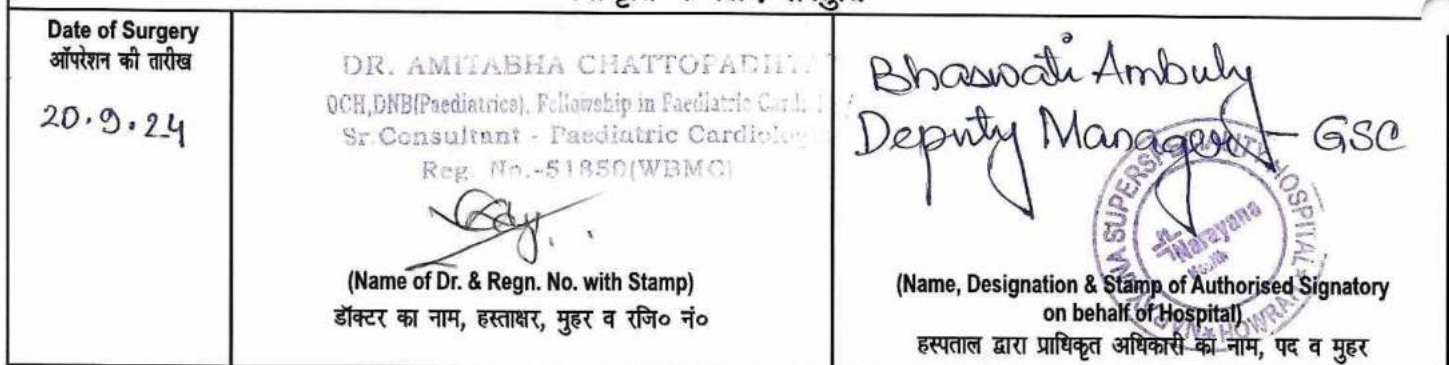 Date of Surgery
ऑपरेशन की तारीख
20.9.24
DR. AMITABHA CHATTOPADHYA
DCH,DNB(Paediatrics), Fellowship in Paediatric
Sr.Consultant - Paediatric Cardiolog
Reg. No.-51850(WBMC)
(Name of Dr. & Regn. No. with Stamp)
डॉक्टर का नाम, हस्ताक्षर, मुहर व रजि० नं०
Bhaswati Ambuly
Deputy Manager - GSC
NARAYANA SUPERSPECIALITY HOSPITAL * HOWRAH *
Narayana
Health
(Name, Designation & Stamp of Authorised Signatory
on behalf of Hospital)
हस्पताल द्वारा प्राधिकृत अधिकारी का नाम, पद व मुहर